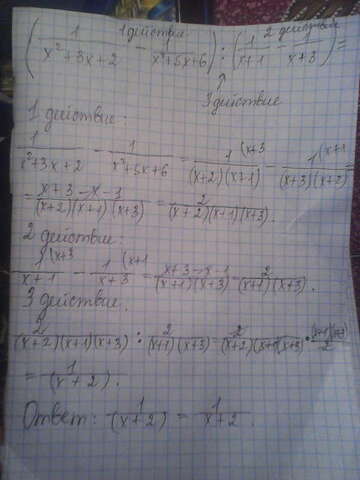 1 действие 2 действие
(1/(x²+3x+2) - 1/(x²+5x+6)) : (1/(x+1) - 1/(x+3)) =
3 действие
1 действие:
1/(x²+3x+2) - 1/(x²+5x+6) = 1^(x+3/((x+2)(x+1)) - 1^(x+1/((x+3)(x+2)) =
= (x+3-x-3)/((x+2)(x+1)(x+3)) = 2/((x+2)(x+1)(x+3)).
2 действие:
1^(x+3/(x+1) - 1^(x+1/(x+3) = (x+3-x-1)/((x+1)(x+3)) = 2/((x+1)(x+3)).
3 действие.
2/((x+2)(x+1)(x+3)) : 2/((x+1)(x+3)) = 2/((x+2)(x+1)(x+3)) · (x+1)(x+3)/2
= 1/(x+2).
Ответ: 1/(x+2) = 1/x+2.